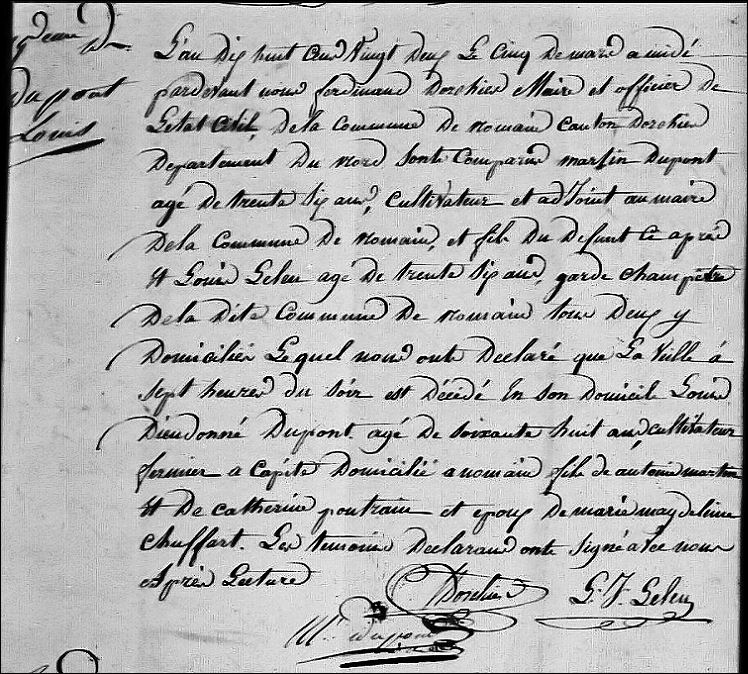 Dupont
Louis
L'an Dix huit cent Vingt Deux Le Cinq De mars a midi
pardevant nous ferdinand Dorchies Maire et officier De
Letat Civil, De la Commune De nomain Canton Dorchies
Departement Du Nord Sonts Comparus martin Dupont
agé De trente Six ans, Cultivateur et adJoint au maire
De la Commune De Nomain, et fils Du Defunt Ci après
et Louis Geleu agé De trente Six ans, garde champetre
De la Dite Commune De nomain tous Deux y
Domiciliés Lequel nous onts Declaré que La Ville à
Sept heures du Soir est Décédé En Son Domicile Louis
Dieudonné Dupont agé De Soixante huit ans, cultivateur
fermier a Domicilié a nomain fils de antoine martin
et De Catherine poutrain et epoux De marie magdeleine
Chuffart. Les temoins Declarans onts Signé avec nous
Après Lecture
Dorchies G. J. Geleu
M. dupont